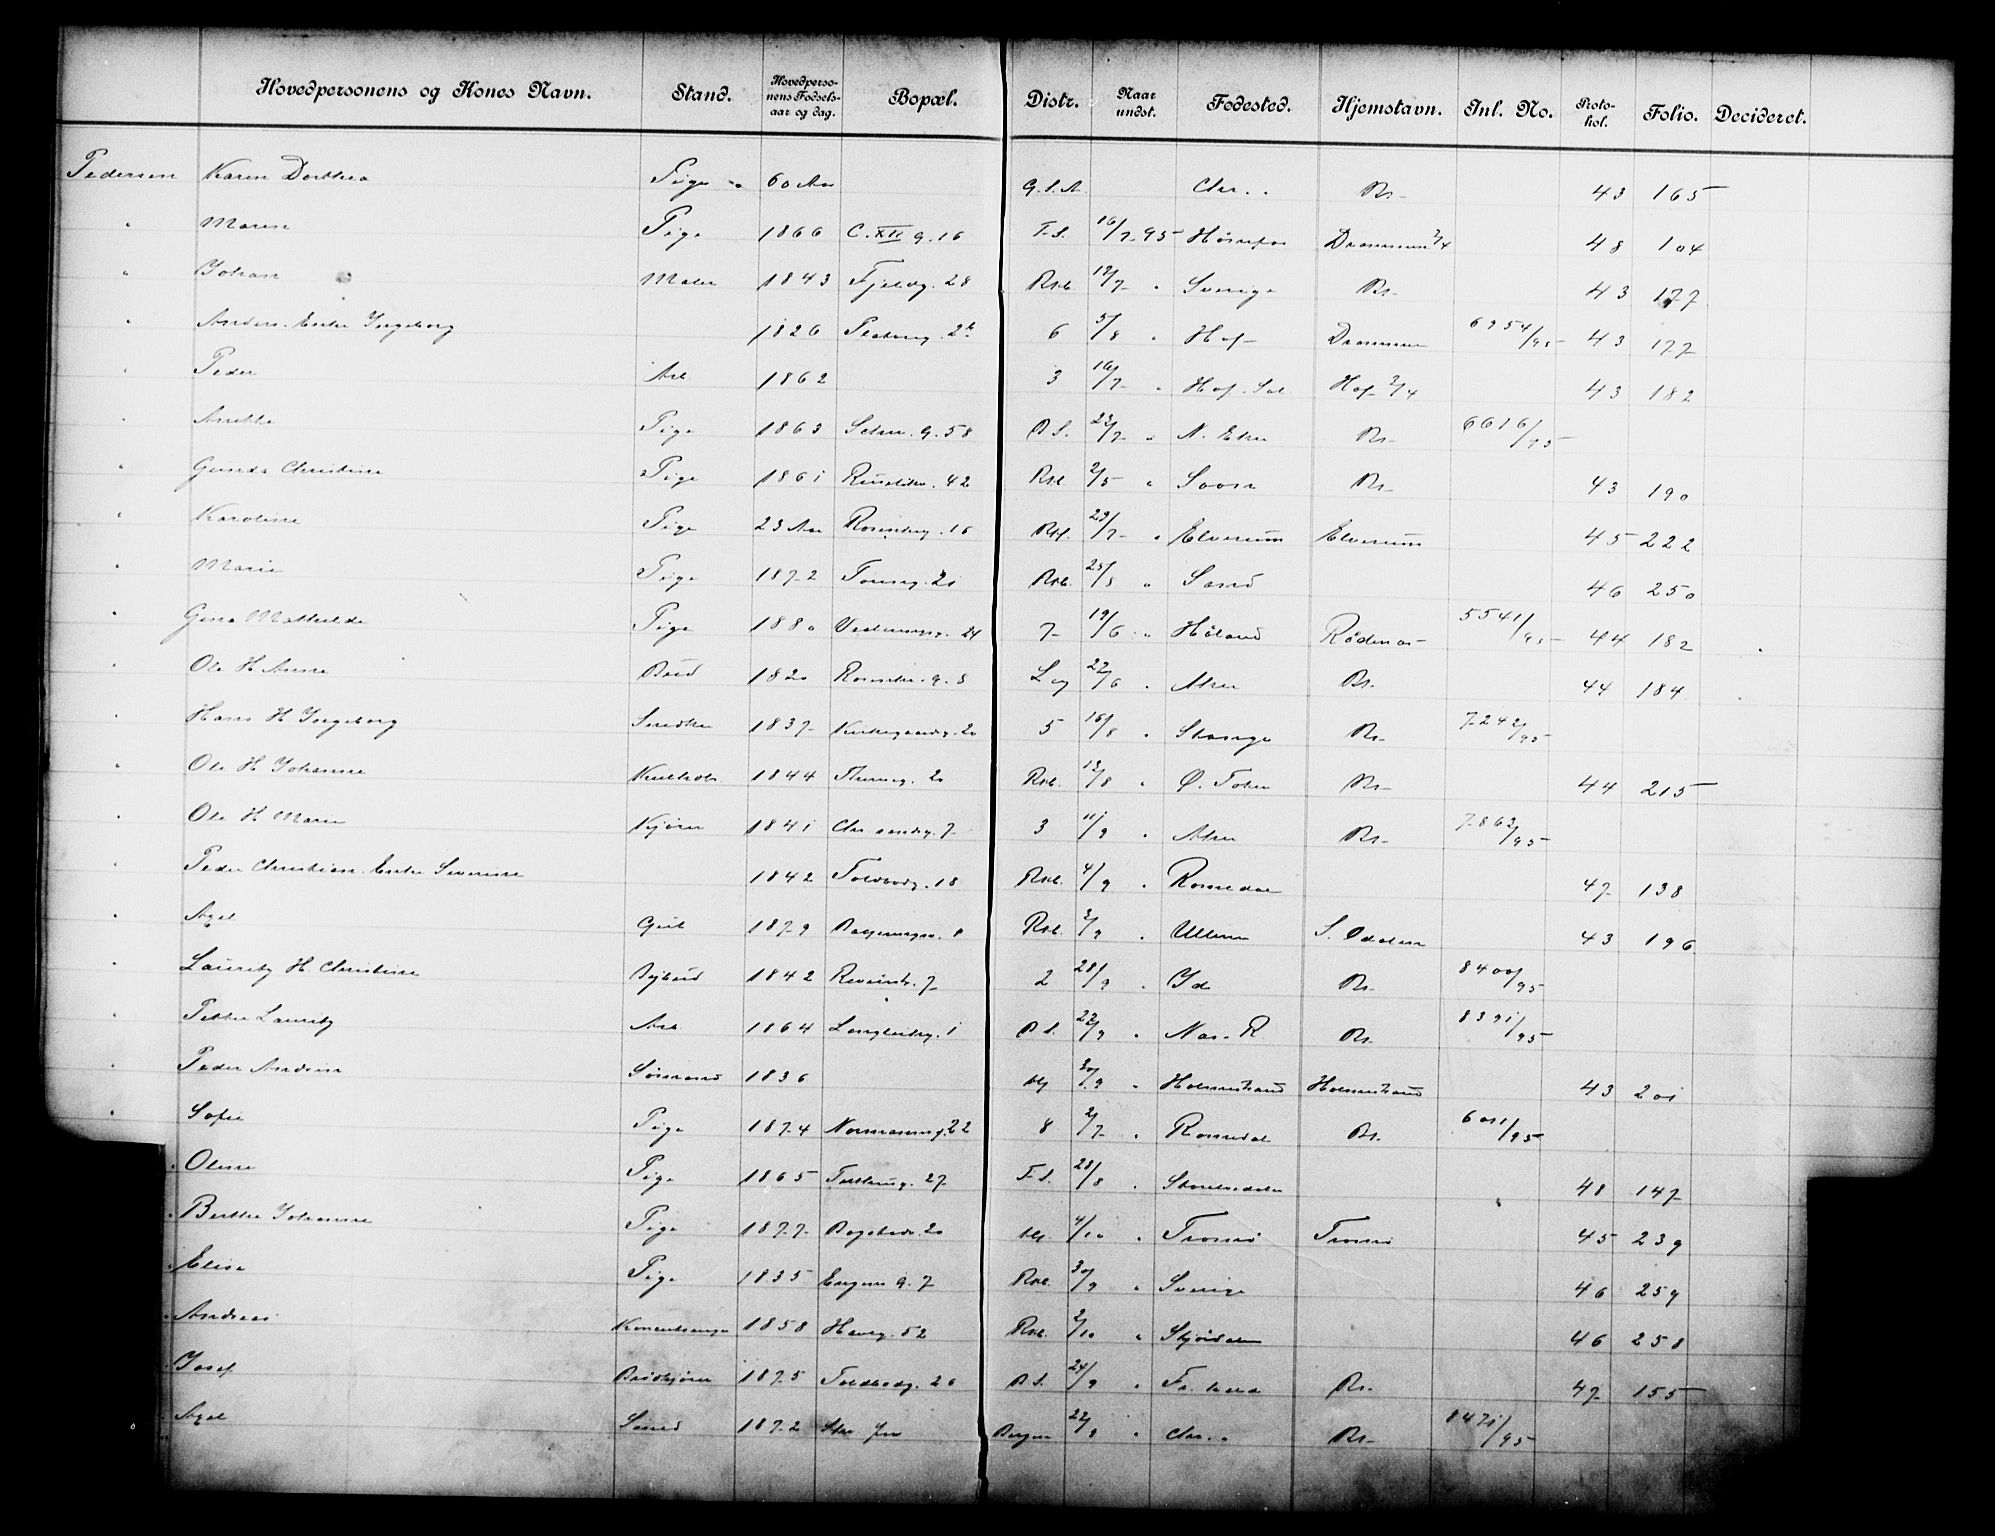 Hovedpersonens og Kones Navn. Stand. Hovedpersonens Fødselsaar og dag. Bopæl. Distr. Naar undst. Fødested. Hjemstavn. Inl. No. Protokol. Folio. Decideret.
Pedersen Karen Dorthea Pige 60 Aar G.S.A. Chr. Br. 43 165
" Maren Pige 1866 C. XII g. 16 F.S. 16/7 95 Hønefos Drammen 2/4 48 104
" Johan Maler 1843 Fjeldg. 28 Rkl. 12/7 " Sverige Br. 43 177
" Anders. Enke Ingeborg 1826 6 5/8 " Hof Drammen 6954/95 43 177
" Peder Arb. 1862 3 16/7 " Hof. Sol. Hof 2/4 43 182
" Anette Pige 1863 Schw. g. 58 B.S. 23/7 " N. Eker Br. 6616/95
" Gunda Christine Pige 1861 Ruseløkv. 42 Rkl. 2/5 " Soon Br. 43 190
" Karoline Pige 23 Aar Rosenborg. 16 Rkl. 23/7 " Elverum Elverum 45 222
" Marie Pige 1872 20 Rkl. 23/8 " Sand 46 250
" Gina Mathilde Pige 1880 24 7 19/6 " Høland Rødenæs 5541/95 44 182
" Ole H Anne Bud 1820 Rosenkr. g. 8 Log 22/6 " Aker Br. 44 184
" Hans H Ingeborg Snedker 1837 Kirkegaardg. 20 5 16/8 " Stange Br. 7242/95
" Ole H Johanne 1844 20 Rkl. 12/8 " Ø. Toten Br. 44 215
" Ole H Maren Kjører 1841 7 3 11/9 " Aker Br. 7863/95
" Peder Christian. Enke Severine 1842 Toldbodg. 18 Rkl. 4/9 " Romedal 47 138
" Axel Gut 1879 8 Rkl. 2/9 " Ullern S. Odalen 43 196
" Lauritz H. Christine Bybud 1842 Revierstr. 7 2 28/9 " Id Br. 8400/95
" Petter Lauritz Arb 1864 Langleikg. 1 B.S. 27/9 " Næs. R. Br. 8391/95
" Peder Andreas Sømand 1836 30/9 " Holmestrand Holmestrand 43 201
" Sofie Pige 1874 Normannsg. 22 8 2/7 " Romedal Br. 6011/95
" Oline Pige 1865 Toftesg. 27 F.S. 28/8 " 48 147
" Berthe Johanne Pige 1877 Bogstadv. 20 4/10 " Tromsø Tromsø 45 239
" Elise Pige 1835 Eugenes g. 7 Rkl. 30/9 " Sverige 46 259
" Andreas 1858 52 Rkl. 2/10 " Stjørdalen 46 258
" Josef Brødkjører 1875 Toldbodg. 26 B.S. 24/9 " Fr. hald Br. 47 155
" Axel 1872 Bergen 22/8 " Chr. Br. 8471/95